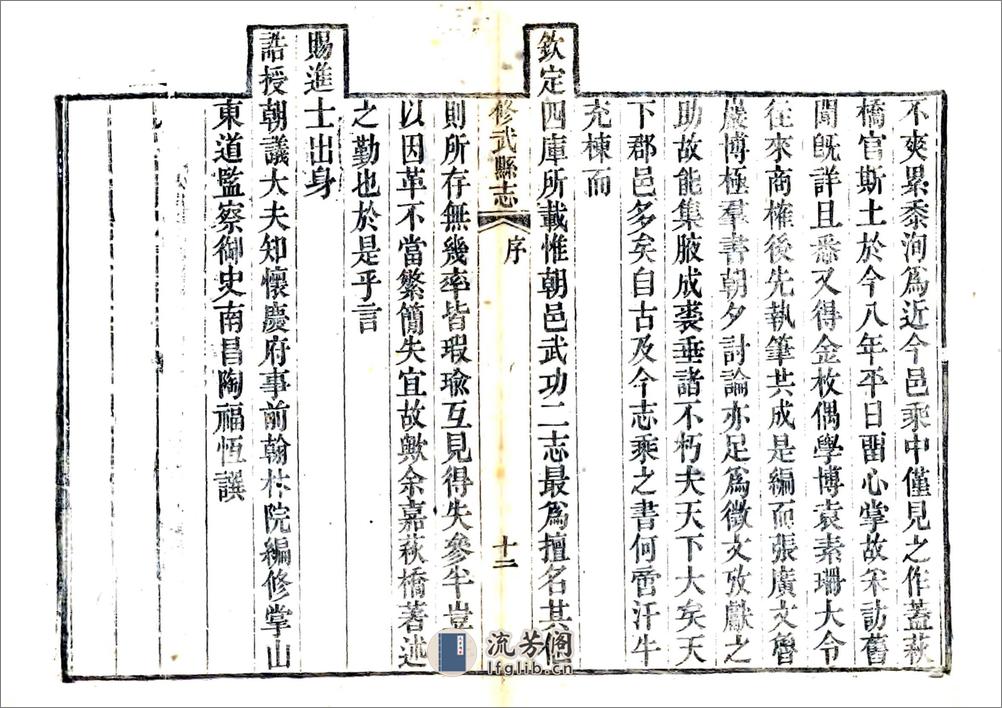 不爽累黍洵為近今邑乘中僅見之作蓋萩
橋官斯土於今八年平日畱心掌故采訪舊
聞旣詳且悉又得金枚偶學博袁素珊大令
往來商榷後先執筆共成是編而張廣文魯
巖博極羣書朝夕討論亦足爲徵文攷獻之
助故能集腋成裘垂諸不朽夫天下大矣天
下郡邑多矣自古及今志乘之書何啻汗牛
充棟而
欽定四庫所載惟朝邑武功二志最爲擅名其
修武縣志
序
十二
則所存無幾率皆瑕瑜互見得失參半豈
以因革不當繁簡失宜故歟余嘉萩橋著述
之勤也於是乎言
賜進士出身
誥授朝議大夫知懷慶府事前翰林院編修掌山
東道監察御史南昌陶福恆譔
流芳阁
lfglib.cn